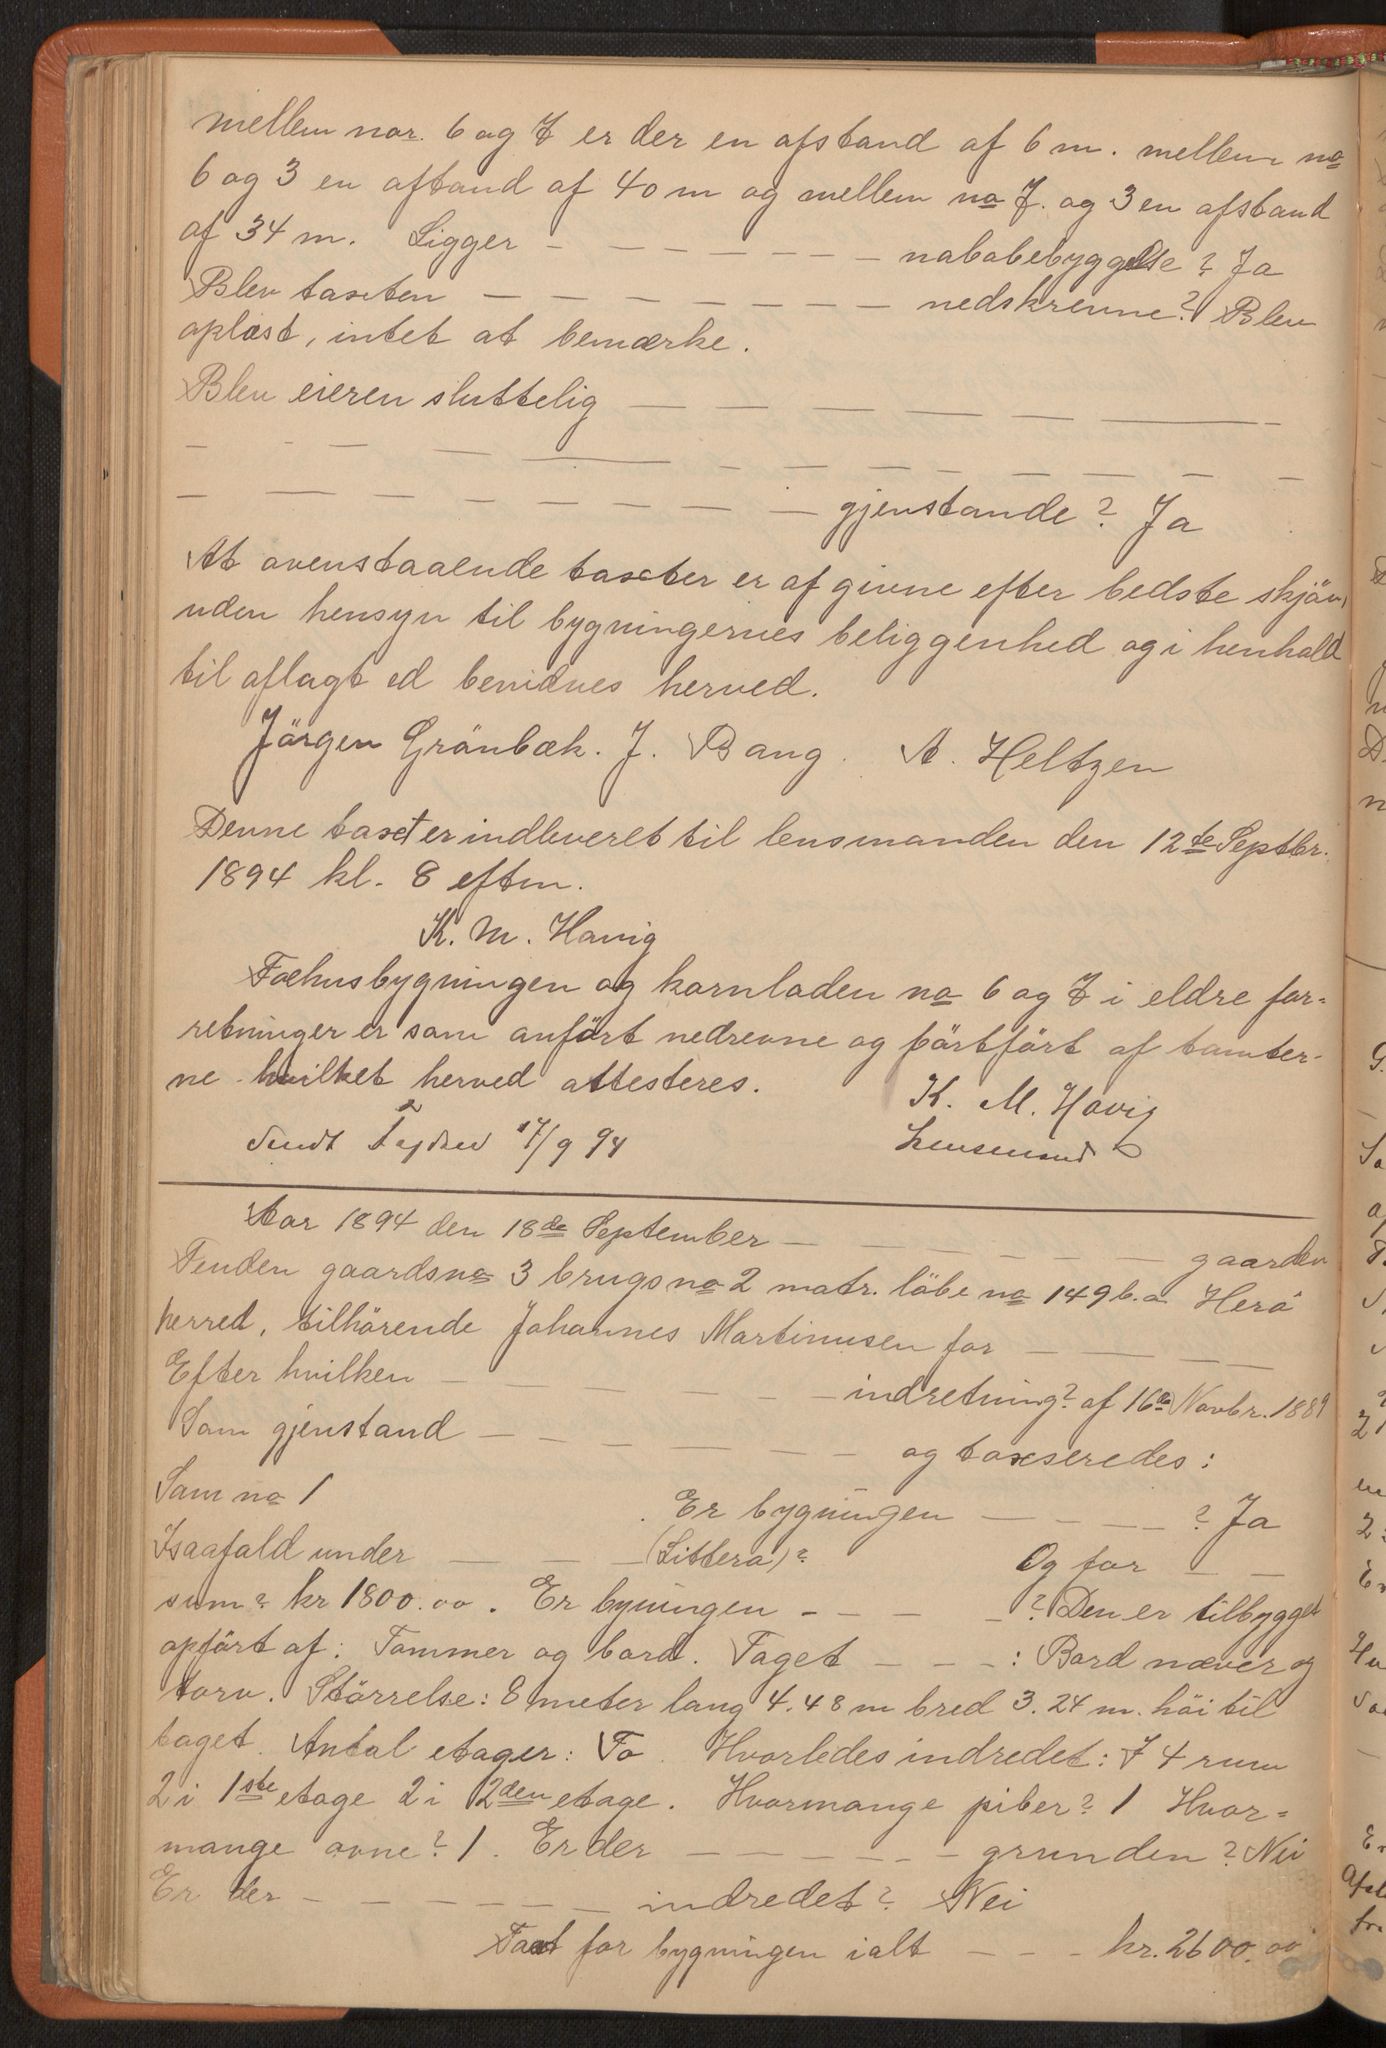 mellem nor. 6 og 7 er der en afstand af 6 m. mellem no
6 og 3 en aftand af 40 m og mellem no 7. og 3 en afstand
af 34 m. Ligger — — — — — — — nabobebyggelse? Ja
Blev taxten — — — — — — — nedskrevne? Blev
oplæst, intet at bemærke.
Blev eieren sluttelig — — — — — — —
— — — — — — — — — — — — —
— — — — — — — — — gjenstande? Ja
At ovenstaaende taxter er afgivne efter bedste skjön,
uden hensyn til bygningernes beliggenhed og i henhold
til aflagt ed bevidnes herved.
Jörgen Grönbæk. J. Bang. A. Heltzen
Denne taxt er indleveret til lensmanden den 12te Septbr.
1894 kl. 8 eftm.
K. M. Havig
Fæhusbygningen og kornladen no 6 og 7 i eldre for=
retninger er som anfört nedrevne og börtfört af tomter-
ne hvilket herved attesteres.
K. M. Havig
Sendt 17/9 94
Lensmand
Aar 1894 den 18de September — — — — — — gaarden
Tenden gaardsno 3 brugsno 2 matr. löbe no 149 b.a Herö
herred, tilhörende Johannes Martinusen for — — — —
Efter hvilken — — — — — — — indretning? af 16de Novbr. 1889
Som gjenstand — — — — — — — og taxseredes:
Som no 1 . Er bygningen — — — — ? Ja
Isaafald under — — — (Littera)? Og for — —
sum? kr 1800.00. Er byningen — — — — ? Den er tilbygget
opfört af: Tømmer og bord. Taget — — — : Bord næver og
torv. Störrelse: 8 meter lang 4.48 m bred 3.24 m. höi til
taget. Antal etager: To. Hvorledes indredet: I 4 rum
2 i 1ste etage 2 i 2den etage. Hvormange piber? 1 Hvor=
mange ovne? 1. Er der — — — — — — grunden? Nei
Er der — — — — — — indredet? Nei
Taxt for bygningen ialt — — — kr. 2600.00